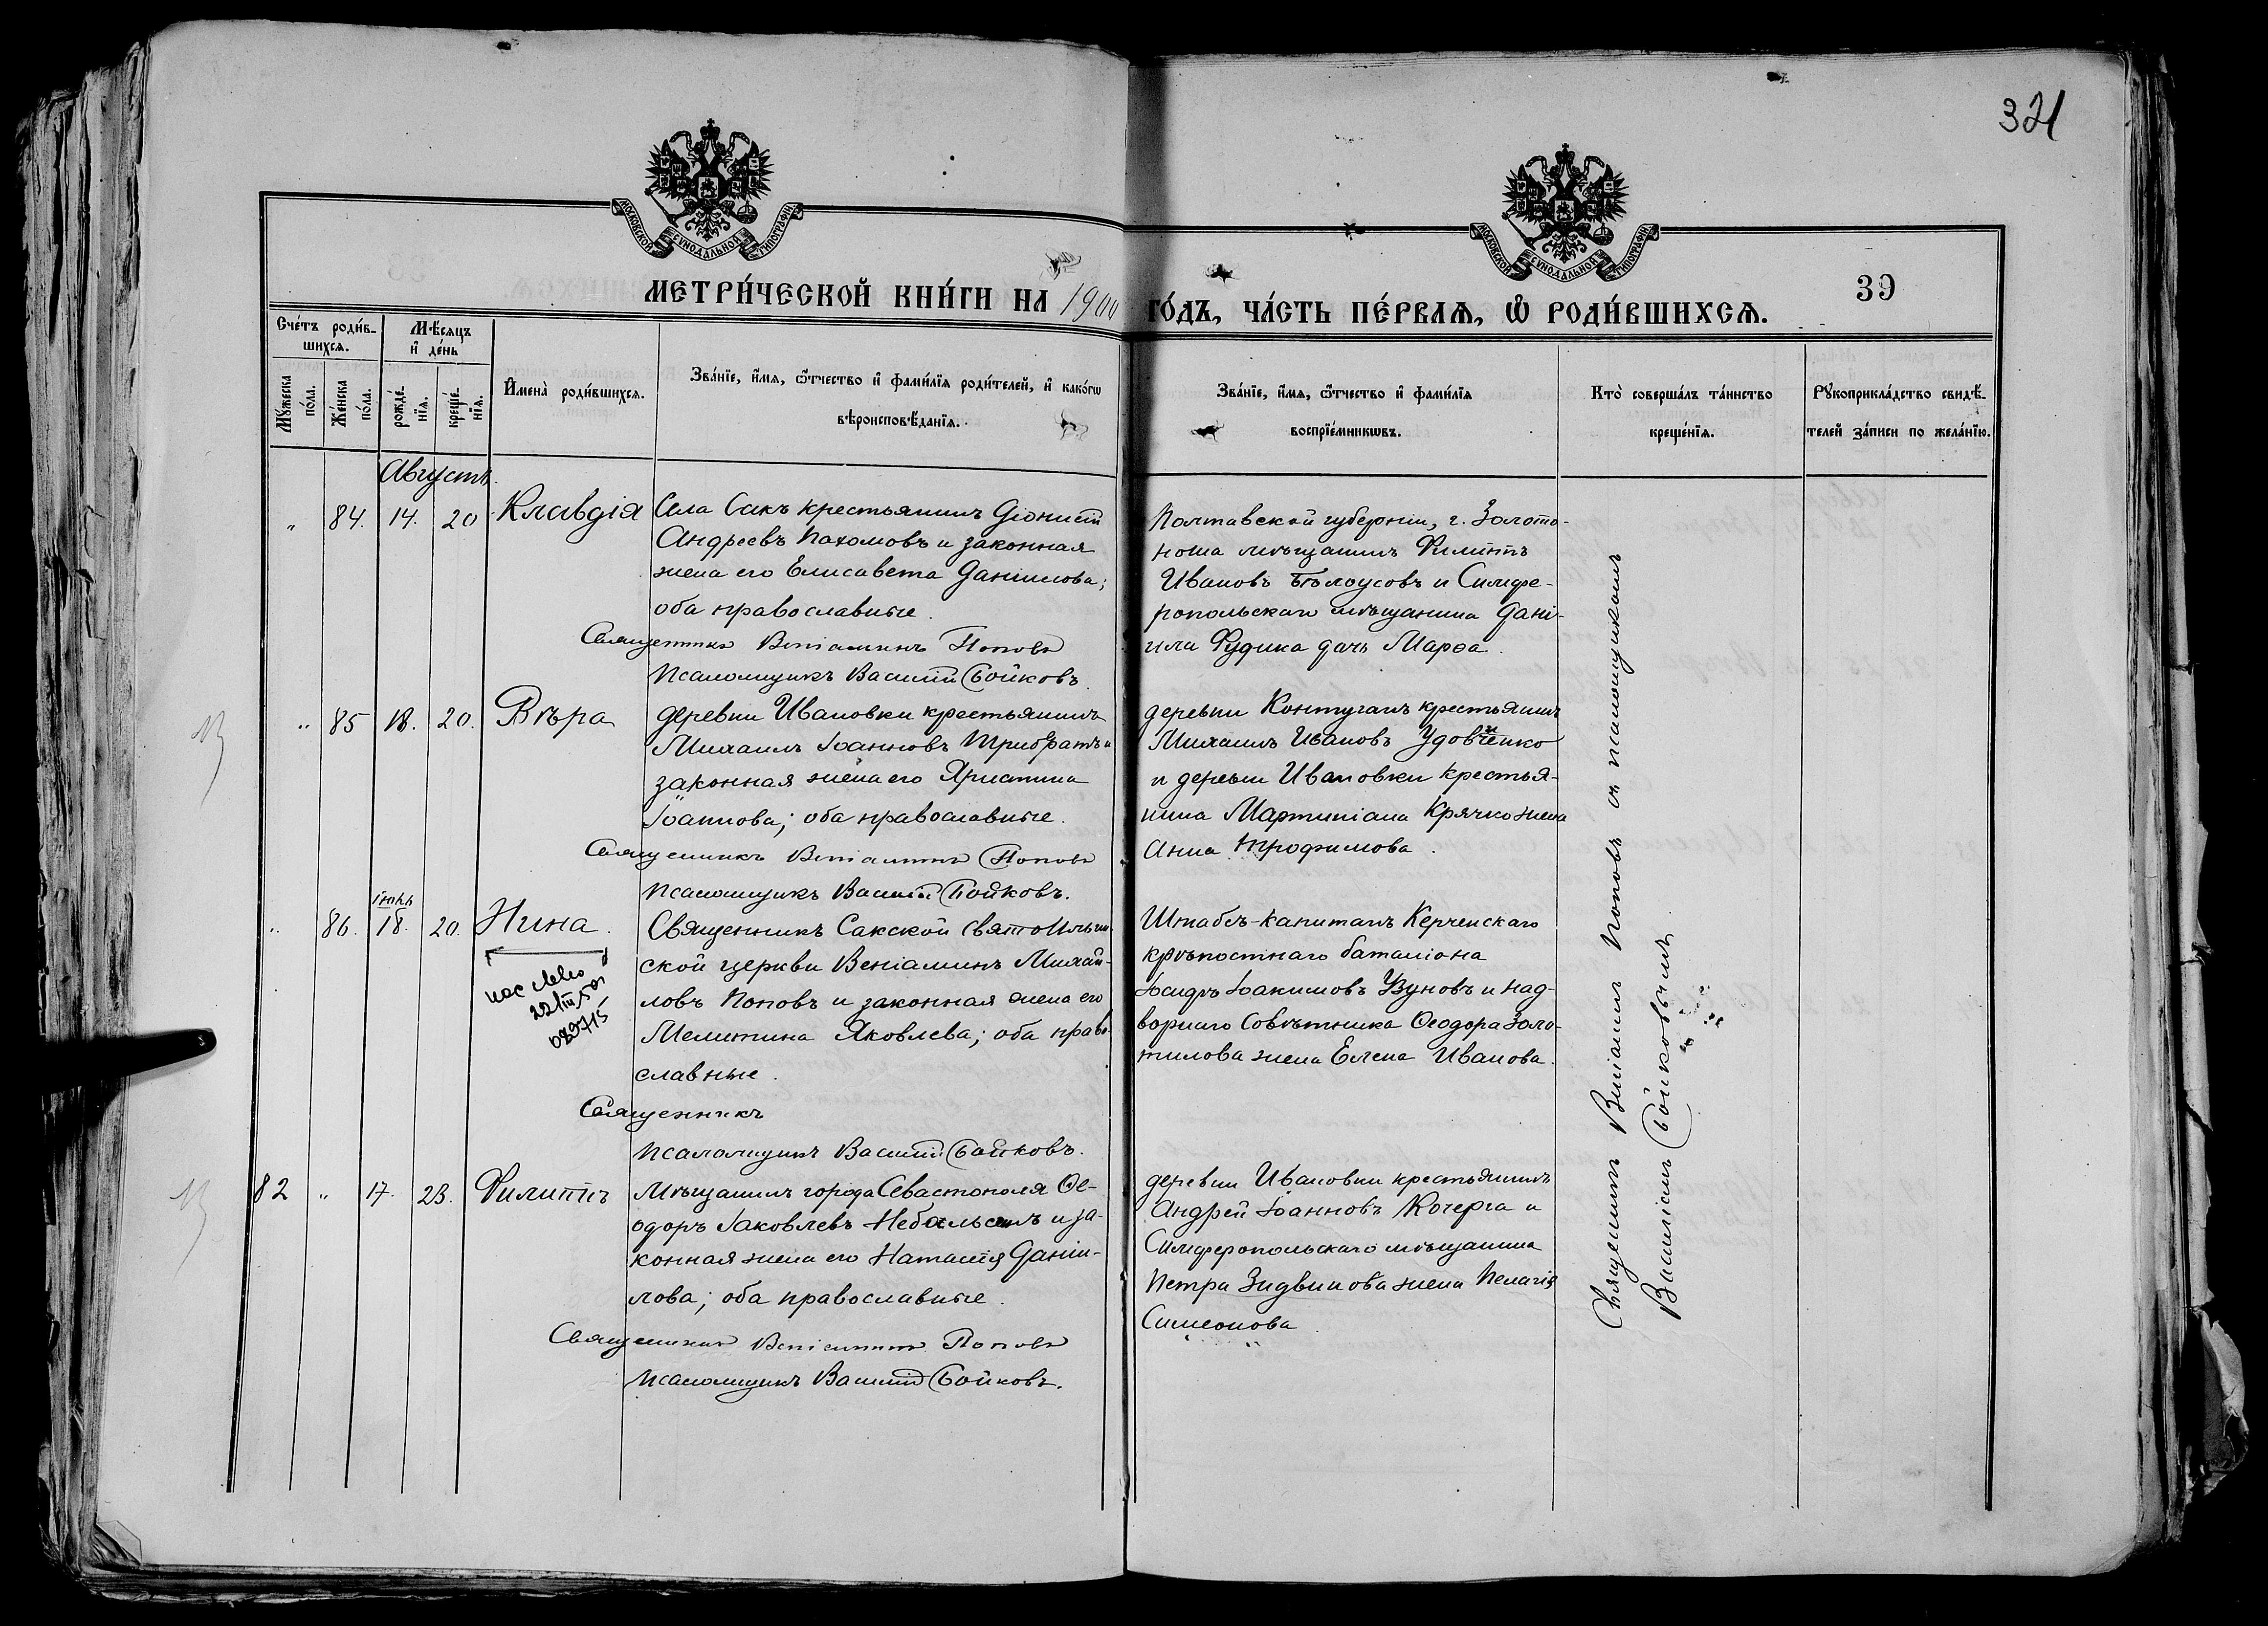 321
МОСКОВСКОЙ СѴНОДАЛЬНОЙ ТИПОГРАФІИ
МОСКОВСКОЙ СѴНОДАЛЬНОЙ ТИПОГРАФІИ
МЕТРИ́ЧЕСКОЙ КНИ́ГИ НА 1900 ГО́ДЪ, ЧА́СТЬ ПЕ́РВАѦ, Ѽ РОДИ́ВШИХСѦ.
39
Сче́тъ роди́в-
шихсѧ.
Мѣ́сѧцъ
и҆ де́нь
Мꙋ́жеска
по́ла.
Же́нска
по́ла.
рожде́-
нїѧ.
креще́-
нїѧ.
И҆мена̀ роди́вшихсѧ.
Зва́нїе, и҆́мѧ, ѻ҆́тчество и҆ фами́лїѧ роди́телей, и҆ како́гѡ
вѣроисповѣ́данїѧ.
Зва́нїе, и҆́мѧ, ѻ҆́тчество и҆ фами́лїѧ
воспрїе́мникѡвъ.
Кто̀ соверша́лъ та́инство
креще́нїѧ.
Рꙋкоприкла́дство свидѣ́-
телей за́писи по жела́нїю.
Августъ.
„ 84. 14. 20 Клавдія
Села Сакъ крестьянинъ Діонисій
Андреевъ Пахомовъ и законная
жена его Елисавета Даніилова;
оба православные.
Священникъ Веніаминъ Поповъ
Псаломщикъ Василій Бойковъ.
Полтавской губерніи, г. Золото-
ноша мѣщанинъ Филиппъ
Ивановъ Бѣлоусовъ и Симфе-
ропольскаго мѣщанина Дані-
ила Фудика дочь Марѳа.
„ 85 18. 20. Вѣра
деревни Ивановки крестьянинъ
Михаилъ Іоанновъ Трибратъ и
законная жена его Христина
Іоаннова; оба православные.
Священникъ Веніаминъ Поповъ
Псаломщикъ Василій Бойковъ.
деревни Контуганъ крестьянинъ
Михаилъ Ивановъ Удовиченко
и деревни Ивановки крестья-
нина Мартиніана Крячко жена
Анна Трофимова.
Іюль
„ 86. 18. 20. Нина.
Священникъ Сакской Свято Ильин-
ской церкви Веніаминъ Михай-
ловъ Поповъ и законная жена его
Мелитина Яковлева; оба право-
славные.
Священникъ
Псаломщикъ Василій Бойковъ.
Штабсъ-капитанъ Керченскаго
крѣпостнаго баталіона
Іосифъ Іоакимовъ Узуновъ и над-
ворнаго Совѣтника Ѳеодора Золо-
тилова жена Елена Иванова.
82 „ 17. 23. Филиппъ
Мѣщанинъ города Севастополя Ѳе-
одоръ Іаковлевъ Небальсинъ и за-
конная жена его Наталія Даніи-
лова; оба православные.
Священникъ Веніаминъ Поповъ
Псаломщикъ Василій Бойковъ.
деревни Ивановки крестьянинъ
Андрей Іоанновъ Кочерга и
Симферопольскаго мѣщанина
Петра Зидвинова жена Пелагія
Симеонова.
Священникъ Веніаминъ Поповъ съ псаломщикомъ
Василіемъ Бойковымъ.